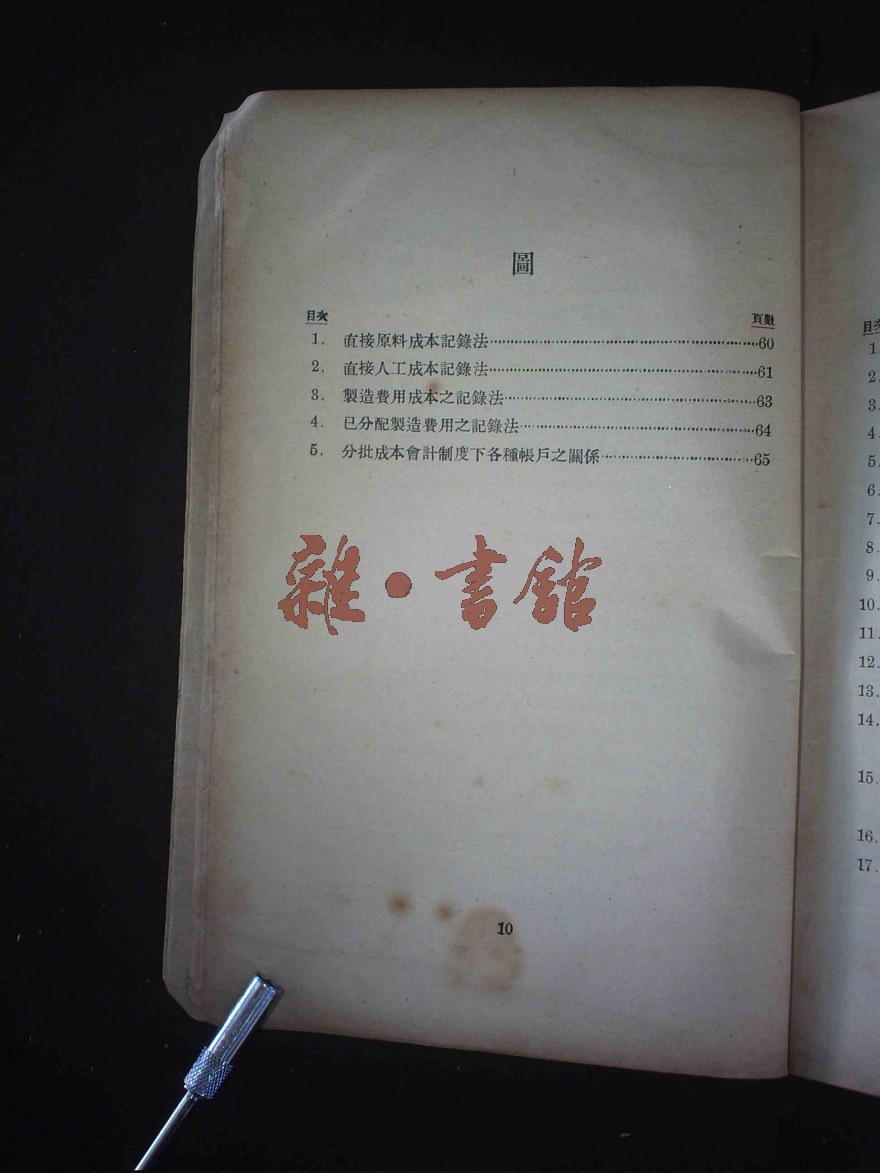 圖
目次 頁數
1. 直接原料成本記錄法……60
2. 直接人工成本記錄法……61
3. 製造費用成本之記錄法……63
4. 已分配製造費用之記錄法……64
5. 分批成本會計制度下各種帳戶之關係……65
雜·書館
10
目次
1
2.
3.
4.
5.
6.
7.
8.
9.
10.
11.
12.
13.
14.
15.
16.
17.